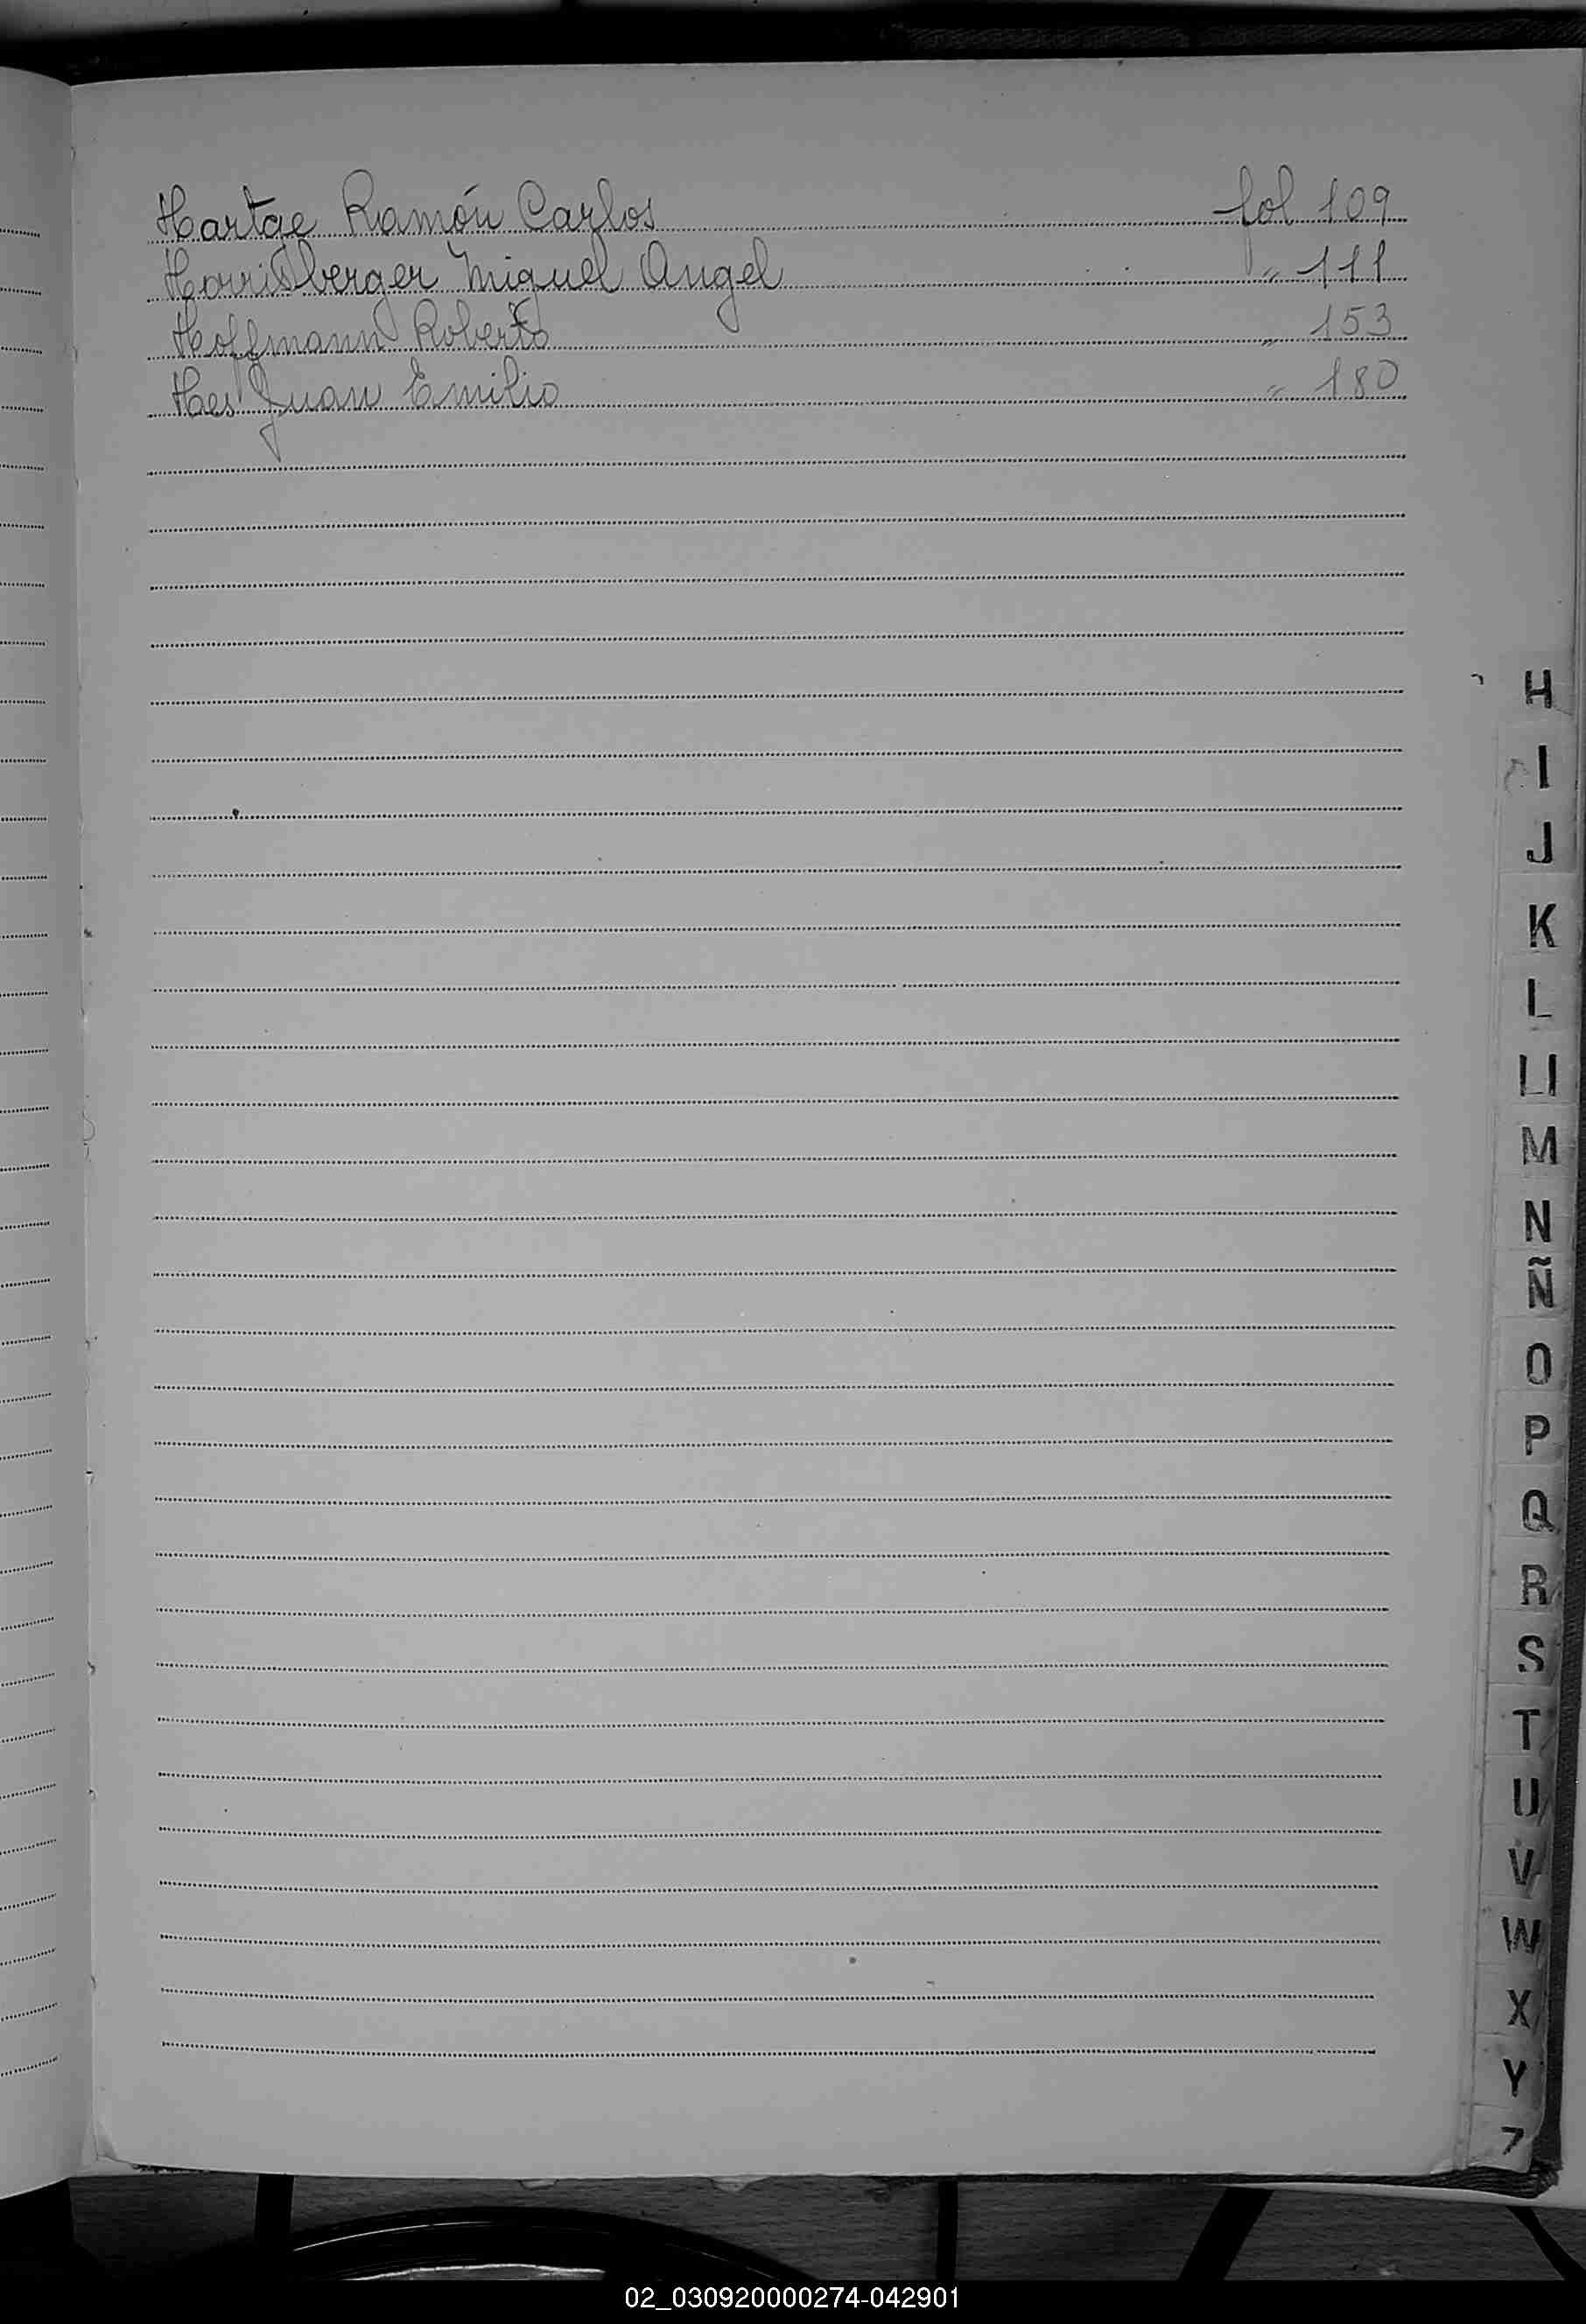 Hartge Ramón Carlos fol 109
Horrisberger Miguel Angel " 111
Hoffmann Roberto " 153
Hes Juan Emilio " 180
H
I
J
K
L
Ll
M
N
Ñ
O
P
Q
R
S
T
U
V
W
X
Y
Z
02_030920000274-042901